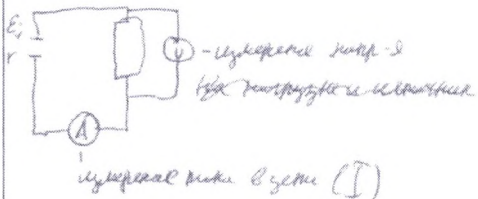 Ɛ;
r
V - измерение напр-я
на нагрузке и источнике
A
измерение тока в цепи (I)